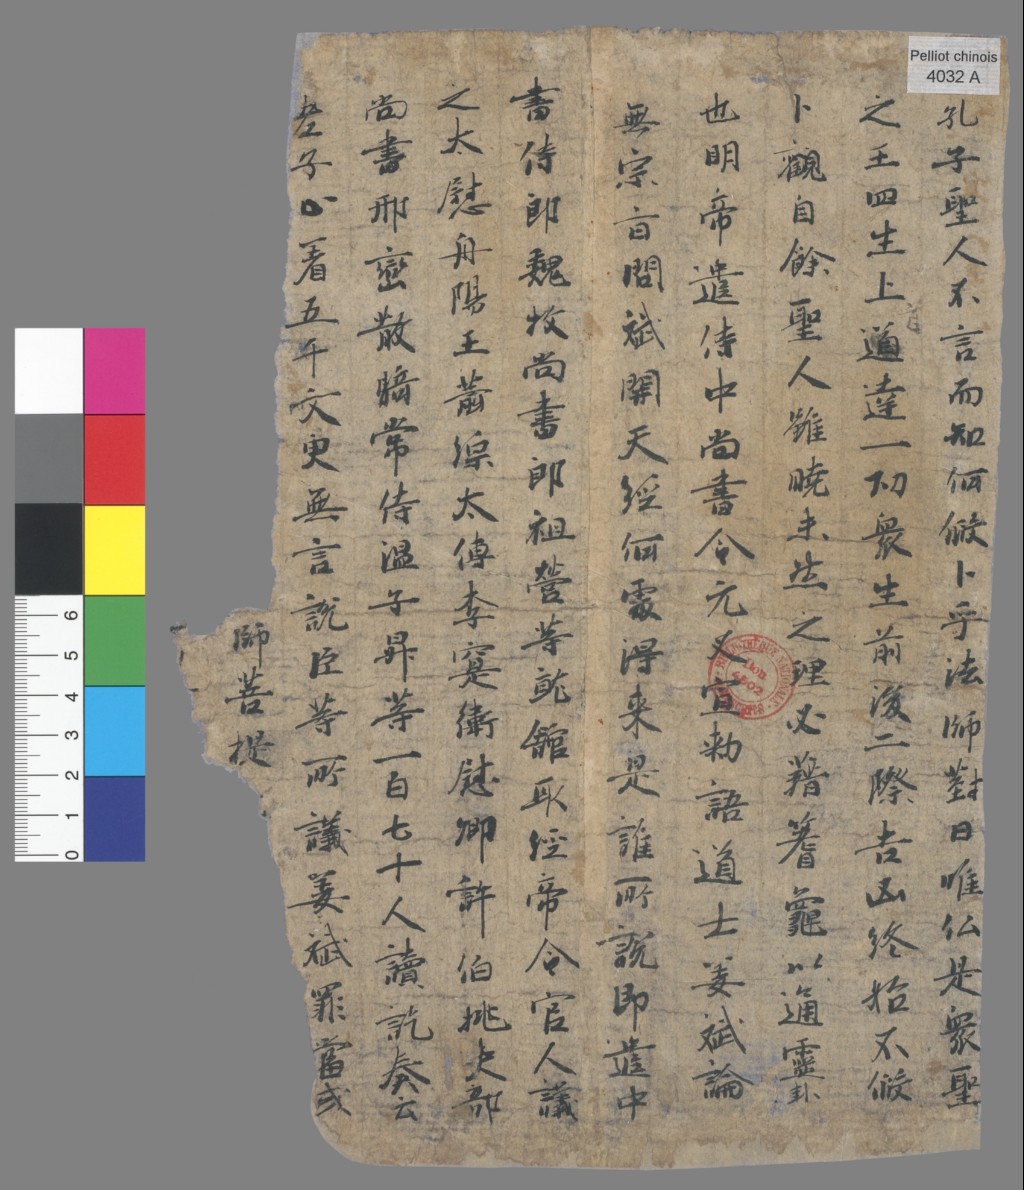 Pelliot chinois
4032 A
孔子聖人不言而知何假卜乎法師對曰唯仏是衆聖
之王四生上道達一切衆生前後二際吉凶終始不假
卜觀自餘聖人雖曉未然之理必藉蓍龜以通靈卦
也明帝遣侍中尚書令元乂宣勅語道士姜斌論
無宗旨問斌開天經何處得来是誰所說即遣中
書侍郎魏收尚書郎祖瑩等就舘取經帝令官人議
之太尉丹陽王蕭綜太傅李寔衛尉卿許伯桃吏部
尚書邢巒散騎常侍温子昇等一百七十人讀訖奏云
老子止着五千文更無言說臣等所議姜斌罪當或
師菩提
0 1 2 3 4 5 6